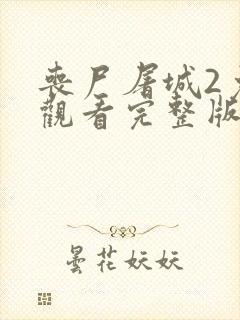 喪尸屠城2
觀看完整版
曇花妖妖